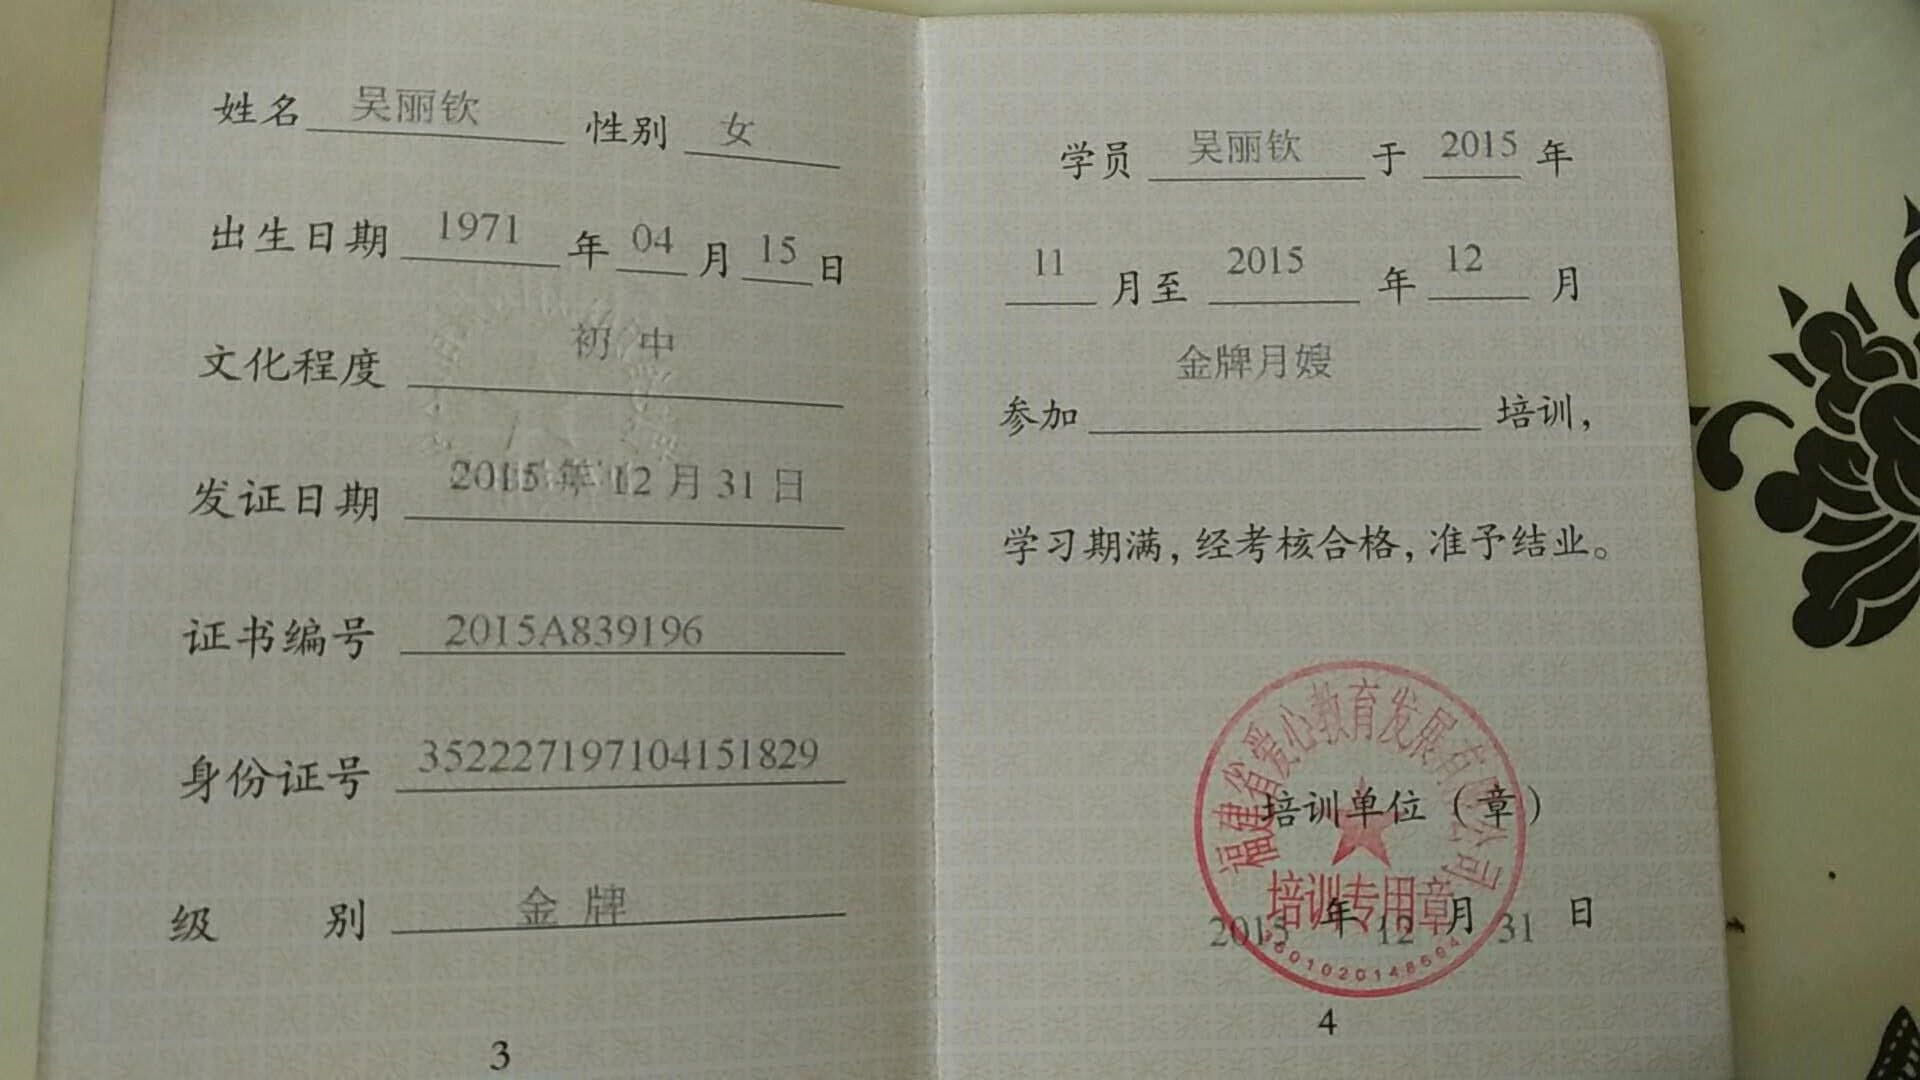 姓名 吴丽钦 性别 女
出生日期 1971 年 04 月 15 日
文化程度 初中
发证日期 2015年12月31日
证书编号 2015A839196
身份证号 352227197104151829
级别 金牌
3
学员 吴丽钦 于 2015 年
11 月至 2015 年 12 月
参加 金牌月嫂 培训，
学习期满，经考核合格，准予结业。
福建省爱心教育发展有限公司
培训单位（章）
培训专用章
2015 年 12 月 31 日
4